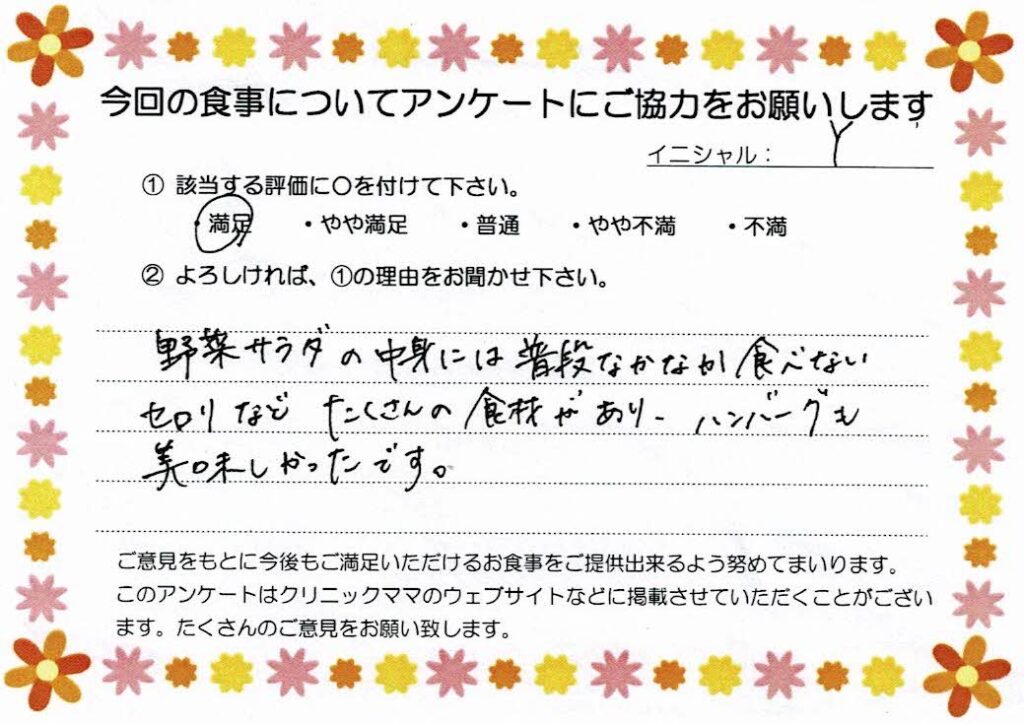 今回の食事についてアンケートにご協力をお願いします
イニシャル： Y
① 該当する評価に〇を付けて下さい。
・満足 ・やや満足 ・普通 ・やや不満 ・不満
② よろしければ、①の理由をお聞かせ下さい。
野菜サラダの中身には普段なかなか食べない
セロリなど たくさんの食材があり、ハンバーグも
美味しかったです。
ご意見をもとに今後もご満足いただけるお食事をご提供出来るよう努めてまいります。
このアンケートはクリニックママのウェブサイトなどに掲載させていただくことがござい
ます。たくさんのご意見をお願い致します。